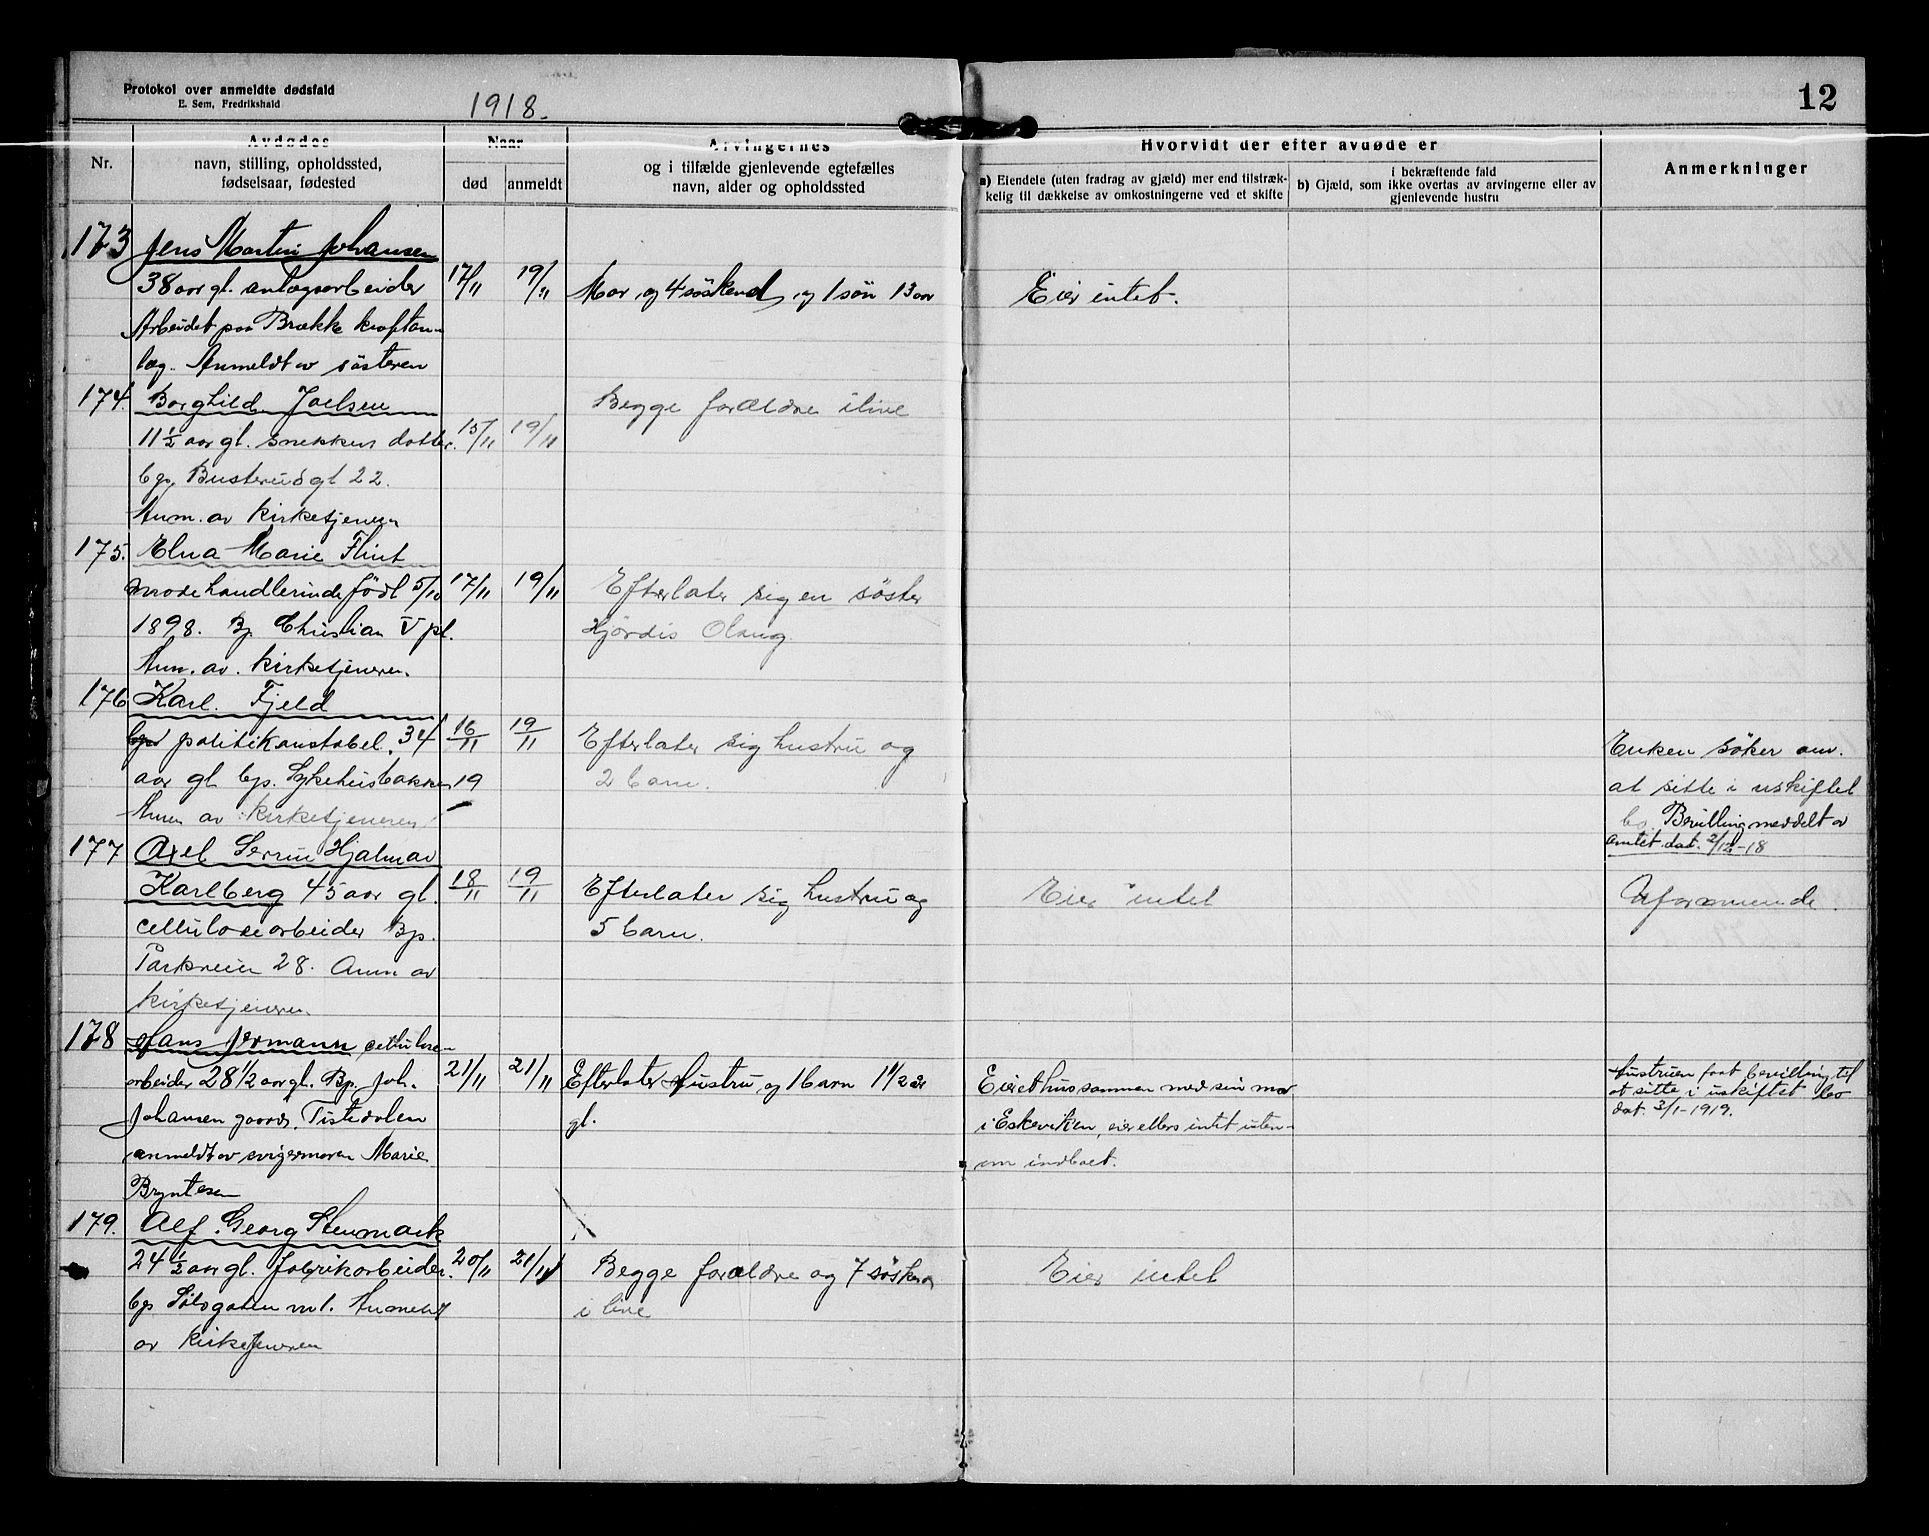 Protokol over anmeldte dødsfald
E. Sem, Fredrikshald
1918.
12
Nr.
Avdødes
navn, stilling, opholdssted,
fødselsaar, fødested
Naar
død
anmeldt
Arvingernes
og i tilfælde gjenlevende egtefælles
navn, alder og opholdssted
Hvorvidt der efter avdøde er
a) Eiendele (uten fradrag av gjæld) mer end tilstræk-
kelig til dækkelse av omkostningerne ved et skifte
i bekræftende fald
b) Gjæld, som ikke overtas av arvingerne eller av
gjenlevende hustru
Anmerkninger
173 Jens Martin Johansen
38 aar gl. anlægsarbeider 17/11 19/11 Mor og 4 søskend og 1 søn 13 aar Eier intet.
Arbeidet paa Brække kraftan-
læg. Anmeldt av søsteren
174. Borghild Joelsen Begge forældre ilive
11 1/2 aar gl. snekkers datter. 15/11 19/11
bp. Busterudgt 22.
Anm. av kirketjeneren
175. Elna Marie Flint
modehandlerinde født 5/10 17/11 19/11 Efterlater sig en søster
1898. Bp Christian V pl. Hjørdis Olaug.
Anm. av. kirketjeneren.
176 Karl. Fjeld
politikonstabel. 34 16/11 19/11 Efterlater sig hustru og Enken søker om.
aar gl bp. Sykehusbakken 19 2 barn. at sitte i uskiftet
Anm av kirketjeneren bo. Bevilling meddelt av
amtet dat. 2/12-18
177 Axel Hjalmar
Karlberg 45 aar gl. 18/11 19/11 Efterlater sig hustru og Eier intet Uformuende.
cellulosearbeider Bp. 5 barn.
Parkveien 28. Anm av
kirketjeneren.
178 Hans Jermann cellulose-
arbeider 28 1/2 aar gl. Bp. Joh. 21/11 21/11 Efterlater Hustru og 1 barn 1 1/2 år Eier et hus sammen med sin mor Hustruen faat bevilling til
Johansen gaard, Tistedalen gl. i Eskeviken, eier ellers intet uten- at sitte i uskiftet bo
dat. 3/1-1919.
anmeldt av svigermoren Marie om indboet.
Bryntesen
179. Alf. Georg Stenmark
24 1/2 aar gl. fabrikarbeider. 20/11 21/11 Begge forældre og 7 søsken Eier intet
bp Sølvgaten Anmeldt i live
av kirketjeneren